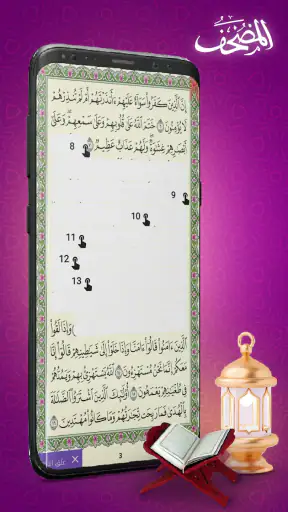 المصحف
إِنَّ ٱلَّذِينَ كَفَرُوا۟ سَوَآءٌ عَلَيْهِمْ ءَأَنذَرْتَهُمْ أَمْ لَمْ تُنذِرْهُمْ
لَا يُؤْمِنُونَ ٦ خَتَمَ ٱللَّهُ عَلَىٰ قُلُوبِهِمْ وَعَلَىٰ سَمْعِهِمْ وَعَلَىٰٓ
أَبْصَـٰرِهِمْ غِشَـٰوَةٌ وَلَهُمْ عَذَابٌ عَظِيمٌ ٧
8
9
10
11
12
13
وَإِذَا لَقُوا۟
ٱلَّذِينَ ءَامَنُوا۟ قَالُوٓا۟ ءَامَنَّا وَإِذَا خَلَوْا۟ إِلَىٰ شَيَـٰطِينِهِمْ قَالُوٓا۟ إِنَّا
مَعَكُمْ إِنَّمَا نَحْنُ مُسْتَهْزِءُونَ ١٤ ٱللَّهُ يَسْتَهْزِئُ بِهِمْ وَيَمُدُّهُمْ
فِى طُغْيَـٰنِهِمْ يَعْمَهُونَ ١٥ أُو۟لَـٰٓئِكَ ٱلَّذِينَ ٱشْتَرَوُا۟ ٱلضَّلَـٰلَةَ
بِٱلْهُدَىٰ فَمَا رَبِحَت تِّجَـٰرَتُهُمْ وَمَا كَانُوا۟ مُهْتَدِينَ ١٦
3